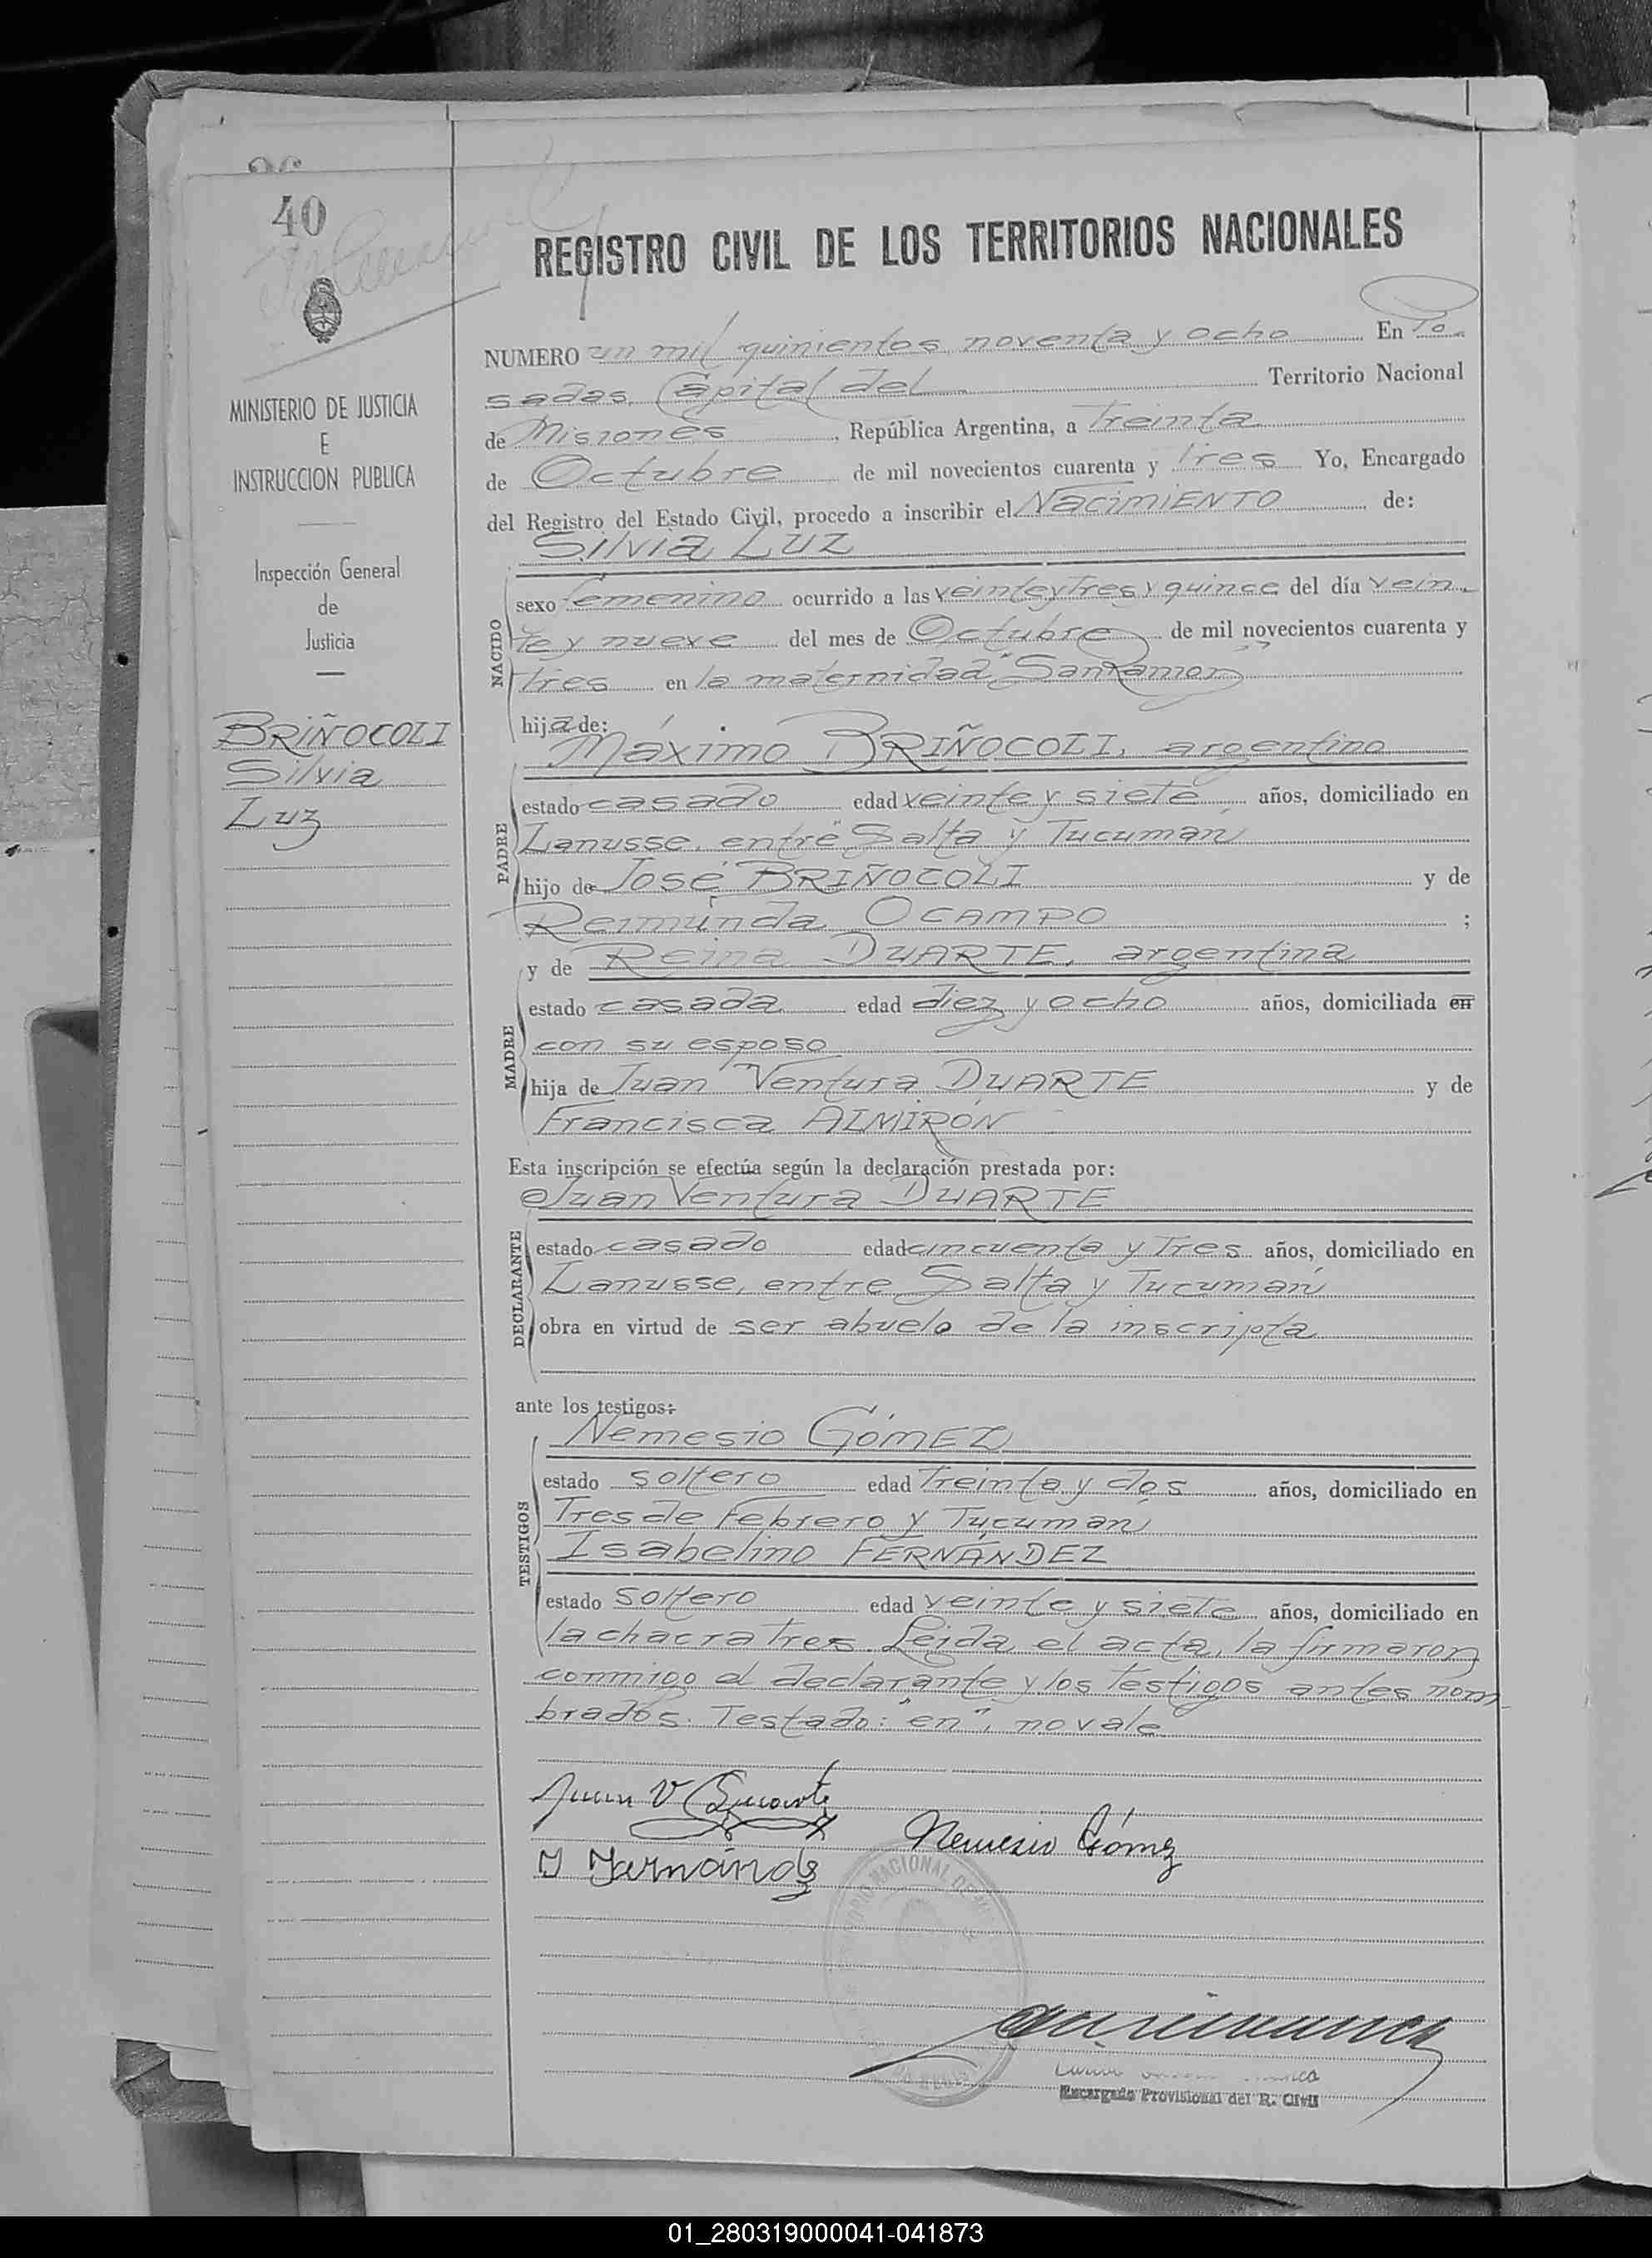 40
MINISTERIO DE JUSTICIA
E
INSTRUCCION PUBLICA
Inspección General
de
Justicia
BRIÑOCOLI
Silvia
Luz
REGISTRO CIVIL DE LOS TERRITORIOS NACIONALES
NUMERO un mil quinientos noventa y ocho En Po
sadas, Capital del Territorio Nacional
de Misiones, República Argentina, a Treinta
de Octubre de mil novecientos cuarenta y Tres Yo, Encargado
del Registro del Estado Civil, procedo a inscribir el NACIMIENTO de:
Silvia Luz
NACIDO
sexo femenino ocurrido a las veinteytres y quince del día vein
te y nueve del mes de Octubre de mil novecientos cuarenta y
Tres en la maternidad "San Ramon"
hija de:
PADRE
Máximo BRIÑOCOLI, argentino
estado casado edad veinte y siete años, domiciliado en
Lanusse, entre Salta y Tucumán
hijo de José BRIÑOCOLI y de
Reimunda OCAMPO ;
MADRE
y de Reina DUARTE, argentina
estado casada edad diez y ocho años, domiciliada en
con su esposo
hija de Juan Ventura DUARTE y de
Francisca ALMIRÓN
Esta inscripción se efectúa según la declaración prestada por:
Juan Ventura DUARTE
DECLARANTE
estado casado edad cincuenta y Tres años, domiciliado en
Lanusse, entre Salta y Tucumán
obra en virtud de ser abuelo de la inscripta
ante los testigos:
TESTIGOS
Nemesio GÓMEZ
estado soltero edad Treinta y dos años, domiciliado en
Tres de Febrero y Tucumán
Isabelino FERNÁNDEZ
estado soltero edad veinte y siete años, domiciliado en
la chacra Tres. Leida el acta, la firmaron
conmigo el declarante y los Testigos antes nom
brados. Testado: "en", no vale
Juan V Duarte
Nemesio Gómez
I Fernández
Encargado Provisional del R. Civil
01_280319000041-041873